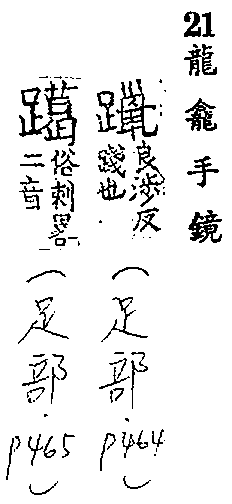 21龍龕手鏡
良涉反
踐也
(足部.p464)
俗刺畧
二音
(足部.p465)